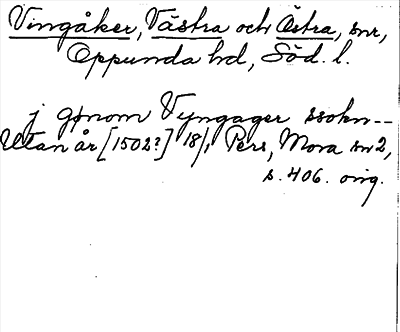 Vingåker, Västra och Östra, snr,
Oppunda hd, Söd. l.
j genom Vyngager ssokn--
Utan år [1502?] 18/1 Pers, Mora sn 2,
s. 406. orig.